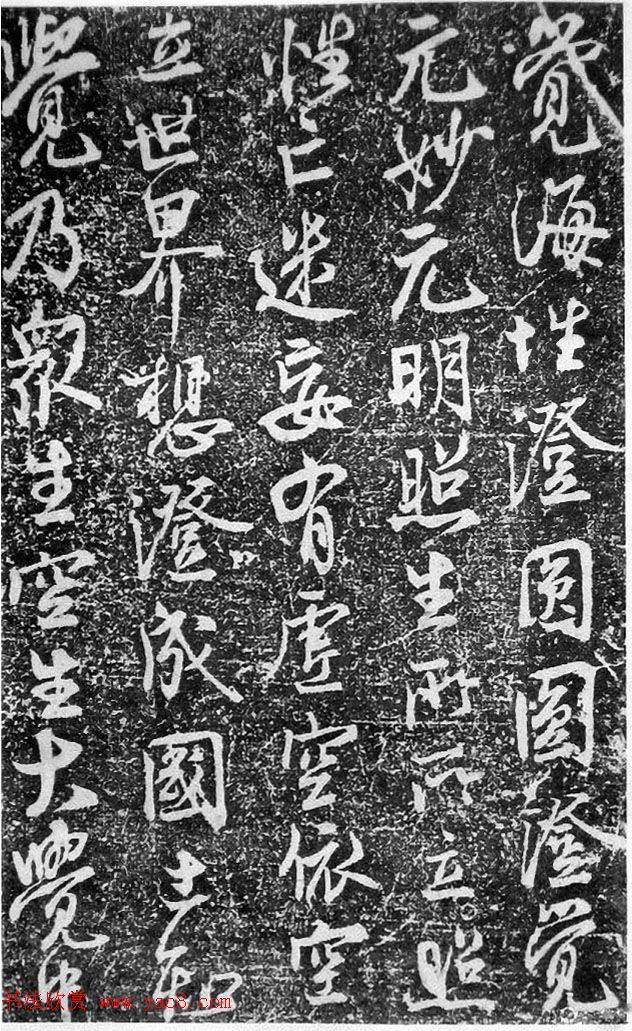 覺海性澄圓圓澄覺
元妙元明照生所所立照
性亡迷妄有虛空依空
立世界想澄成國土知
覺乃眾生空生大覺中
书法欣赏 www.yac8.com